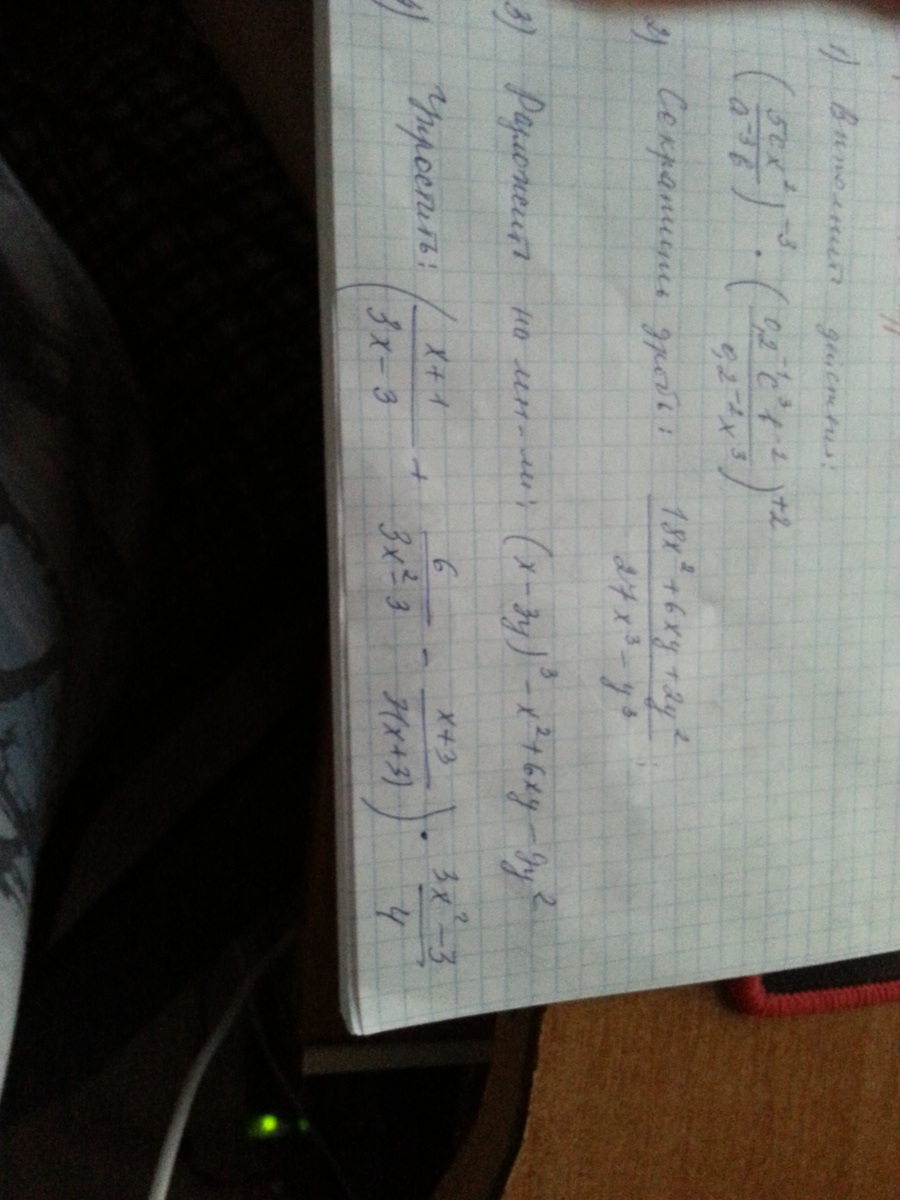 1) Выполнить действия:
(5cx²/a⁻³b)⁻³ · (0,2⁻¹c³x⁻²/0,2⁻²x³)⁺²
2) Сократить дробь: (18x² + 6xy + 2y²)/(27x³ - y³);
3) Разложить на мн-ли: (x - 3y)³ - x² + 6xy - 9y²
4) Упростить: ((x+1)/(3x-3) + 6/(3x²-3) - (x+3)/(x+3)) · (3x²-3)/4